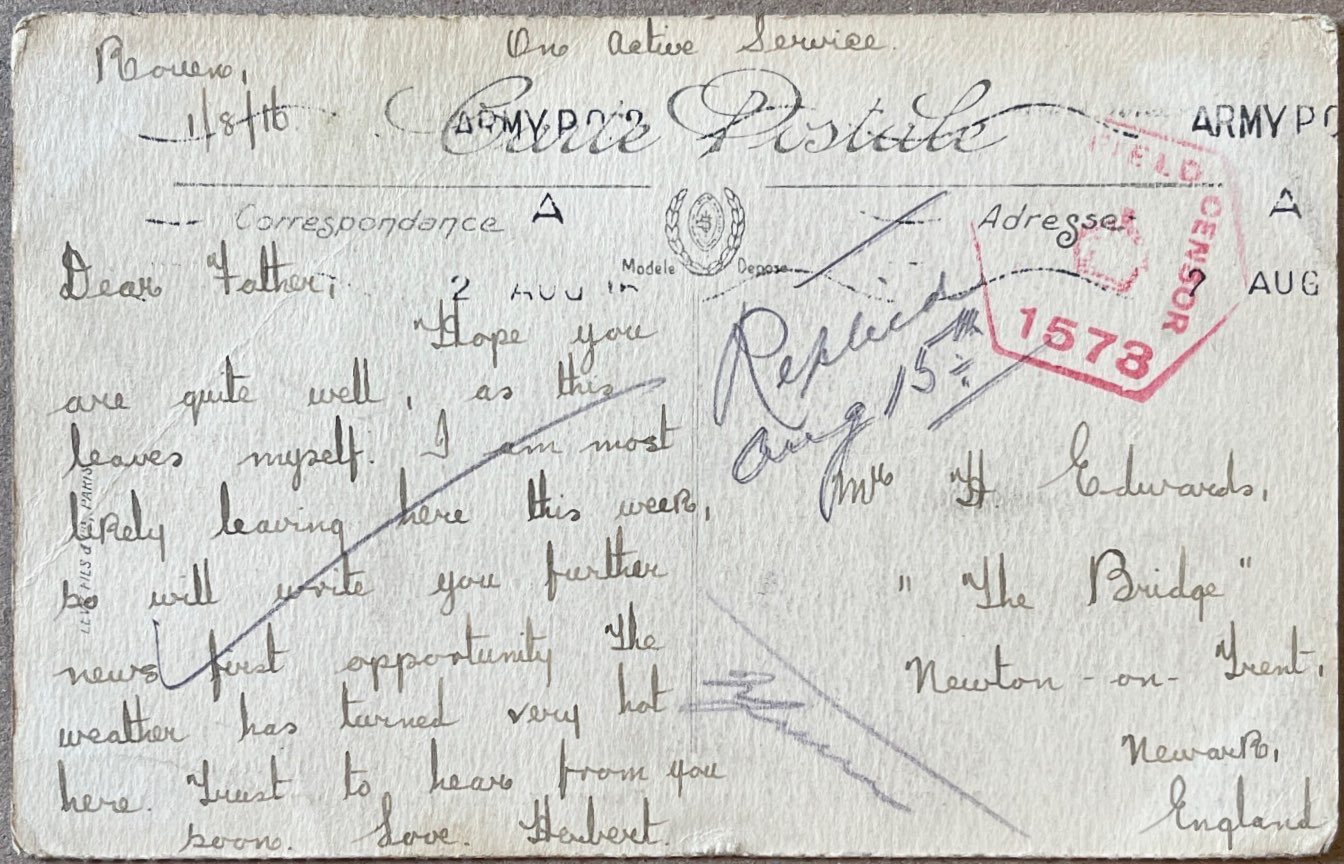 On Active Service.
Rouen,
1/8/16
Carte Postale
ARMY P.O. 2
ARMY PO
Correspondance
A
Adresse
A
Modele Depose
2 AUG 16
2 AUG
FIELD CENSOR
1578
Dear Father,
Hope you
are quite well, as this
leaves myself. I am most
likely leaving here this week,
so will write you further
news first opportunity The
weather has turned very hot
here. Trust to hear from you
soon. Love. Herbert.
LEVY FILS & Cie, PARIS
Replied
Aug 15th
Mr H Edwards,
"The Bridge"
Newton-on-Trent,
Newark,
England